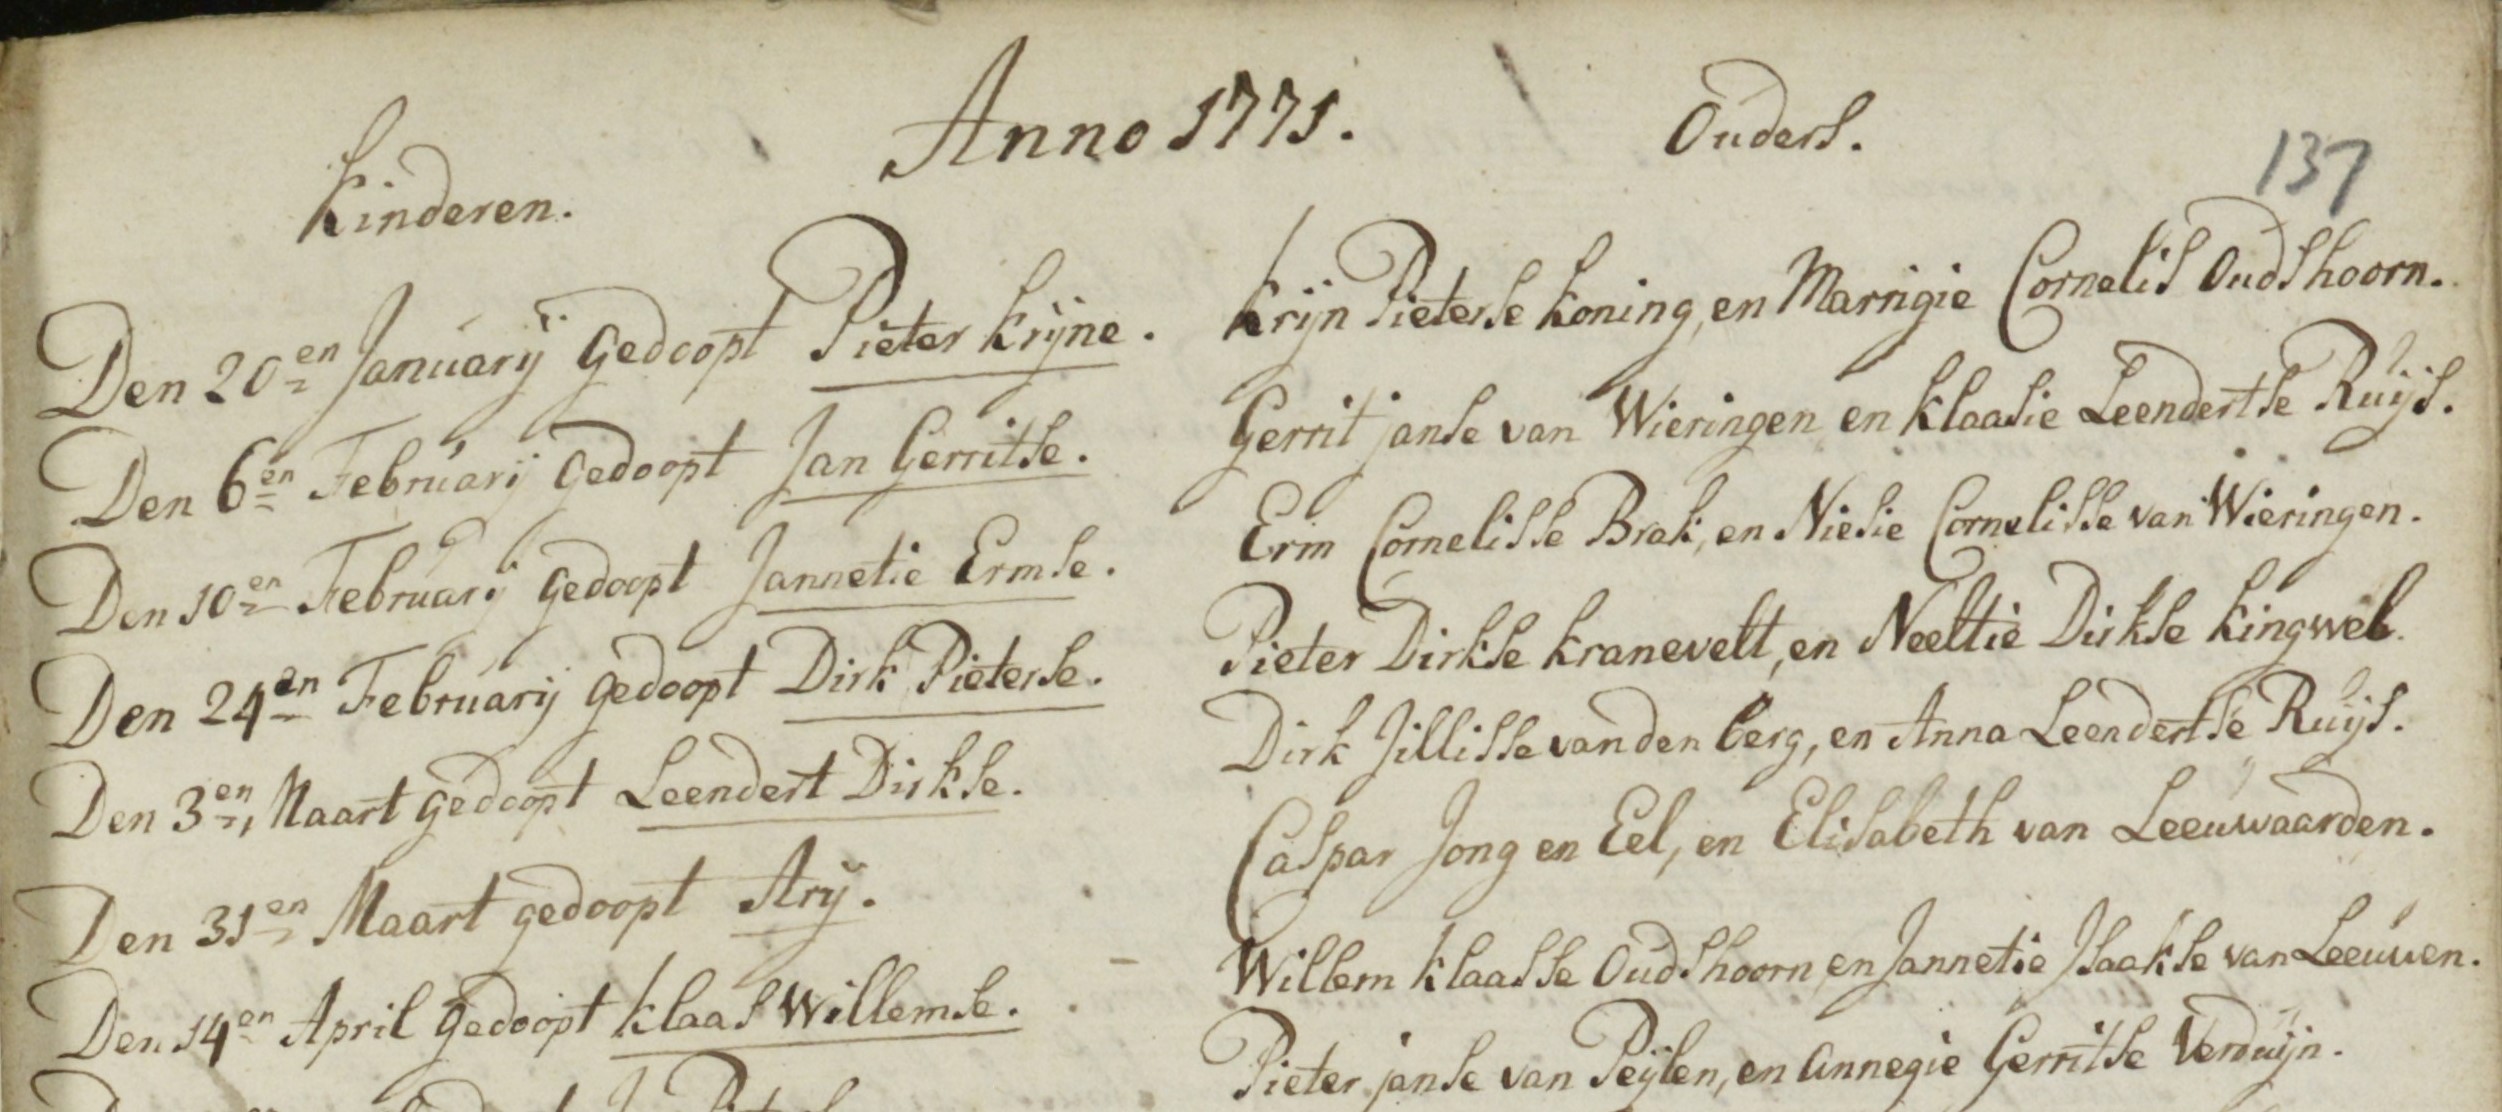 Anno 1771.
Kinderen.
Ouders.
137
Den 20en Januarij Gedoopt Pieter Krijne.
Krijn Pieterse Koning, en Marrigie Cornelis Oudshoorn.
Den 6en Februarij Gedoopt Jan Gerritse.
Gerrit janse van Wieringen en Klaasie Leendertse Ruijs.
Den 10en Februarij Gedoopt Jannetie Ermse.
Erm Cornelisse Brak, en Niesie Cornelisse van Wieringen.
Den 24en Februarij Gedoopt Dirk Pieterse.
Pieter Dirkse Kranevelt, en Neeltie Dirkse Kingwel.
Den 3en Maart Gedoopt Leendert Dirkse.
Dirk Jillisse van den berg, en Anna Leendertse Ruijs.
Den 31en Maart gedoopt Arij.
Caspar Jong en Eel, en Elisabeth van Leeuwaarden.
Den 14en April Gedoopt Klaas Willemse.
Willem Klaasse Oudshoorn, en Jannetie Isaakse van Leeuwen.
Pieter janse van Peijlen, en Annegie Gerritse Verduijn.